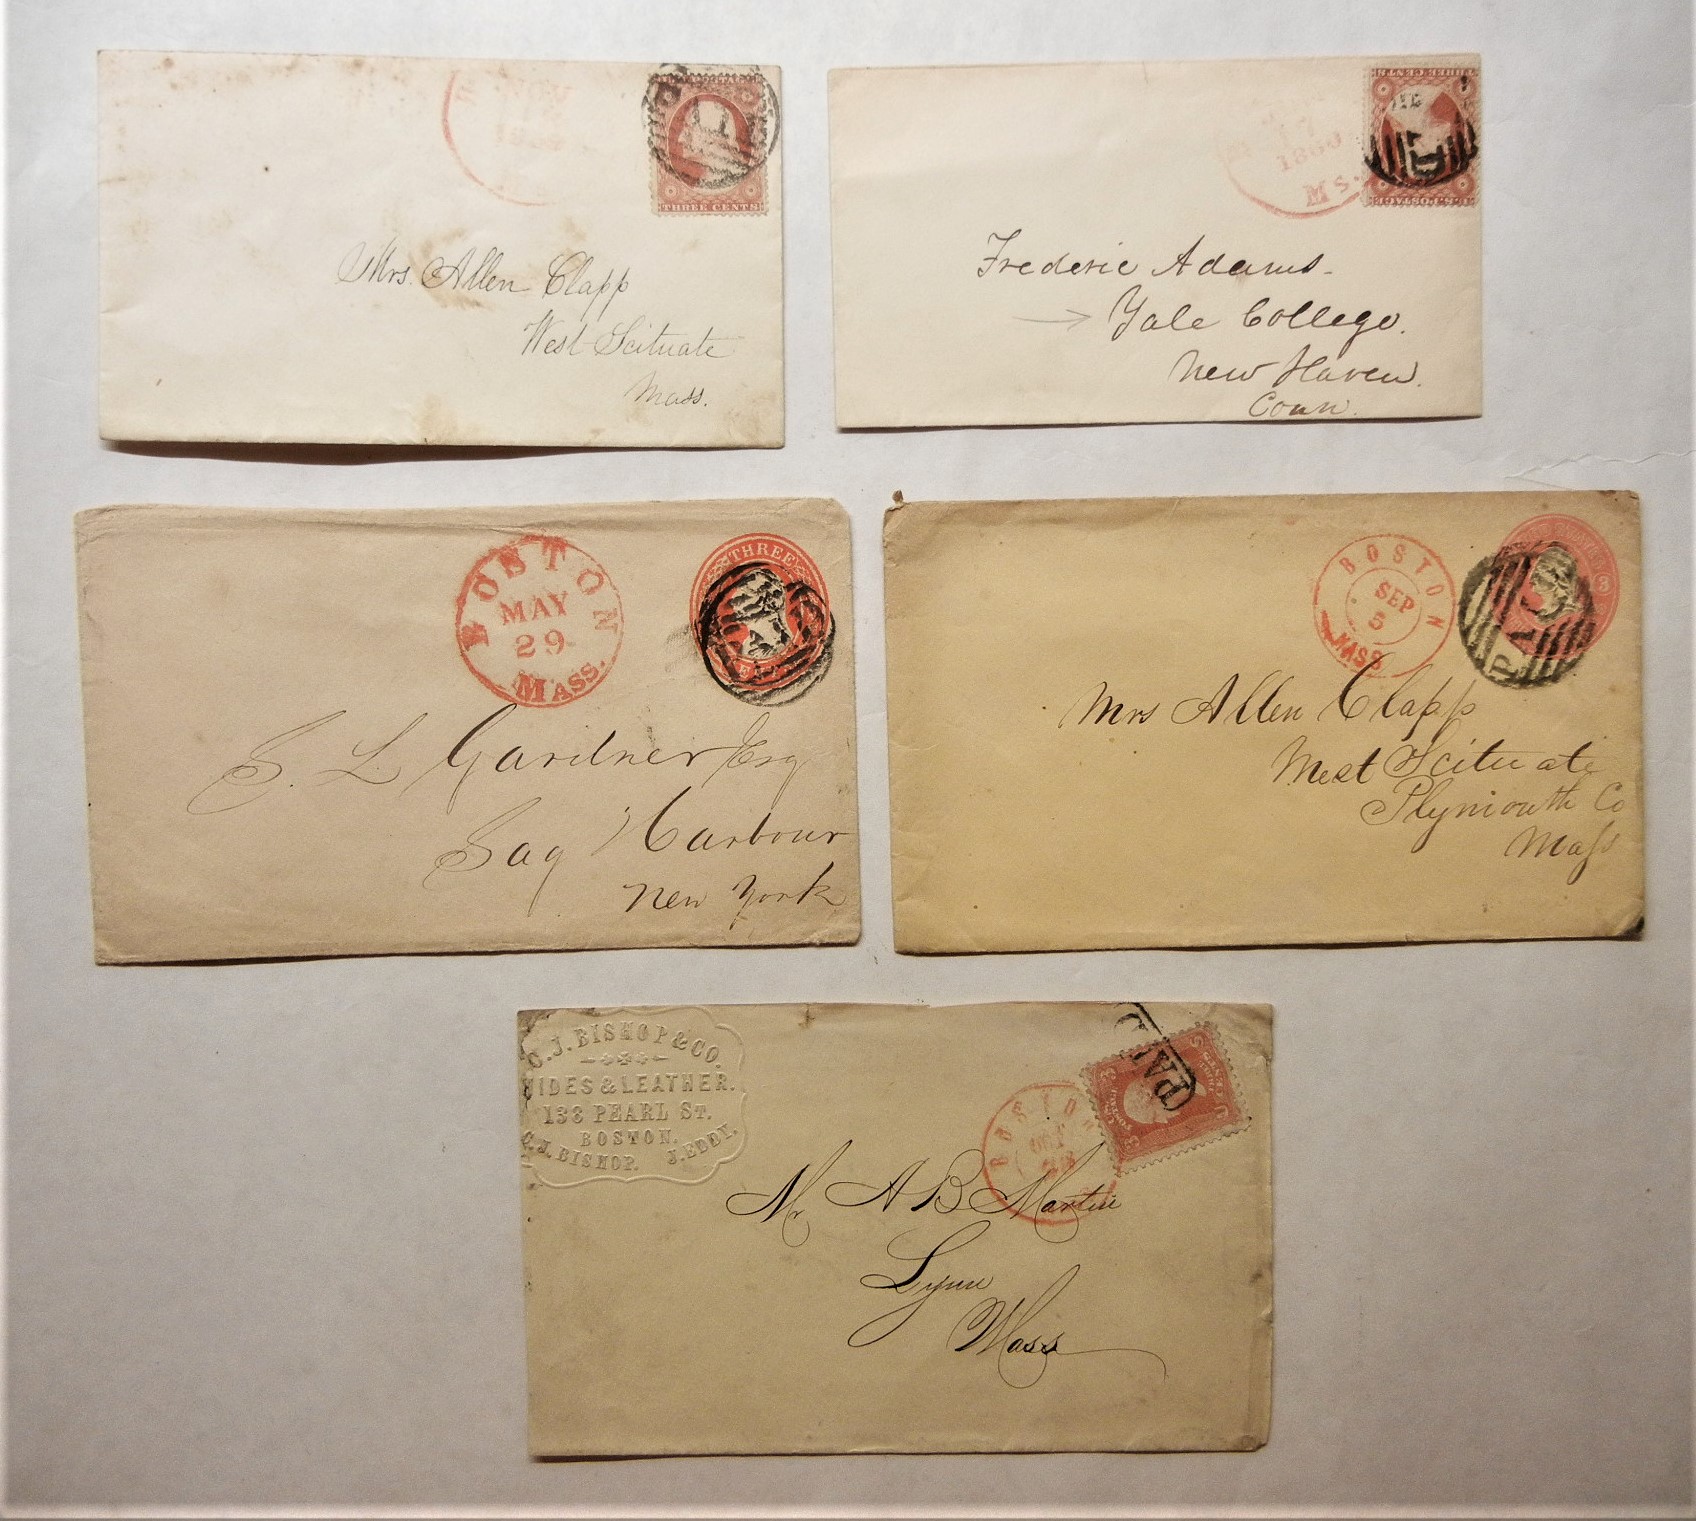 NOV
THREE CENTS
Mrs. Allen Clapp
West Scituate
Mass.
THREE CENTS
17
1860
Ms.
PAID
U.S. POSTAGE
Frederic Adams.
Yale College.
New Haven.
Conn.
BOSTON
MAY
29
MASS.
THREE
S. L Gardner Esq
Sag Harbour
New York
BOSTON
SEP
5
MASS
PAID
3
Mrs Allen Clapp
West Scituate
Plymouth Co
Mass
C.J. BISHOP & CO.
HIDES & LEATHER.
138 PEARL ST.
BOSTON.
C.J. BISHOP. J. EDDY.
PAID
BOSTON
U S
3
3
Mr A B Martin
Lynn
Mass